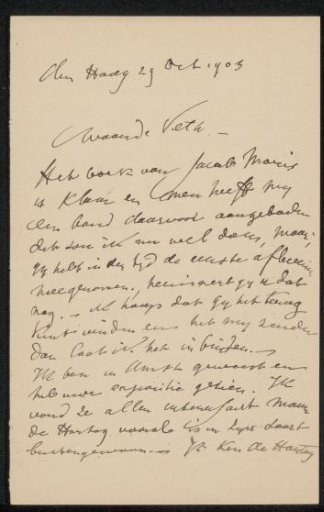 den Haag 29 Oct 1903
Waarde Veth. -
Het boek van Jacob Maris
is klaar en men heeft my
een band daarvoor aangeboden
dat zou ik nu wel doen, maar
gij hebt in der tyd de eerste aflevering
meegenomen, herinnert gy u dat
nog. Ik hoop dat gy het terug
kunt vinden en het my zenden
dan laat ik het in binden.
Ik ben in Amst geweest en
heb uwe expositie gezien. Ik
vond ze allen interessant maar
de Hartog vooral is in zyn soort
buitengewoon. Ik ken de Hartog